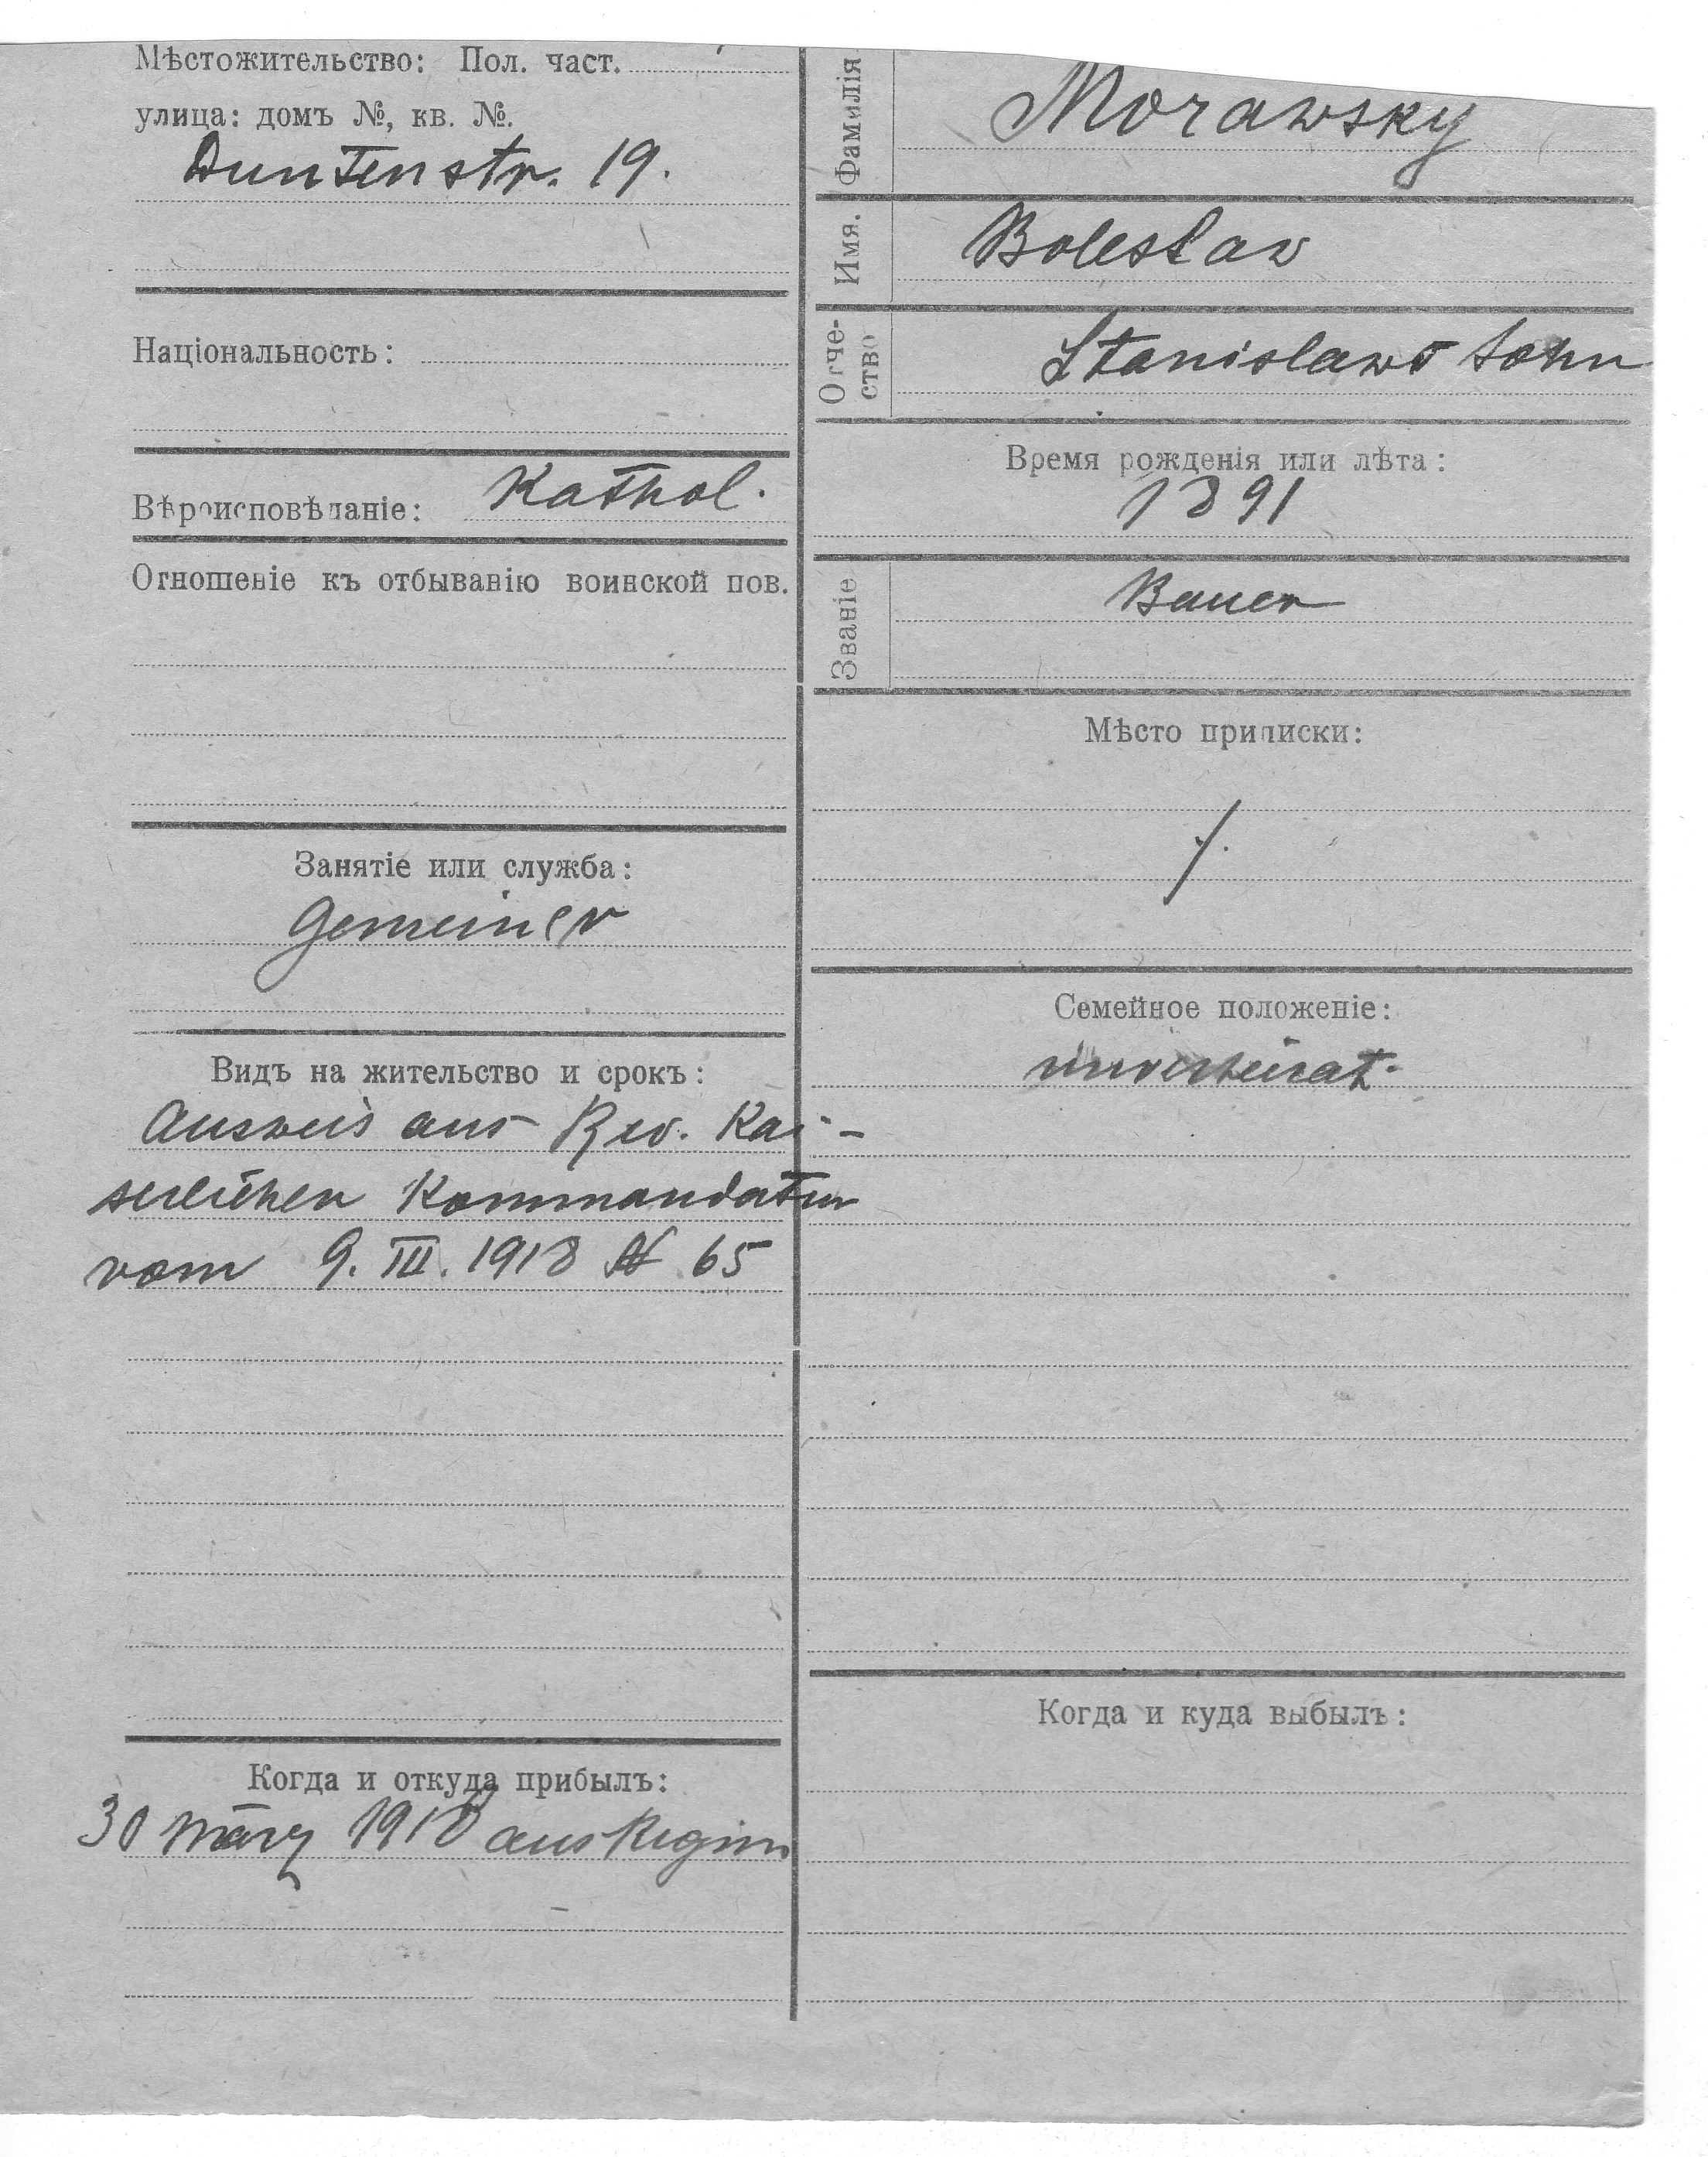 Мѣстожительство: Пол. част.
улица: домъ №, кв. №.
Duntenstr. 19.
Національность:
Вѣроисповѣданіе: Kathol.
Отношеніе къ отбыванію воинской пов.
Занятіе или служба:
Gemeiner
Видъ на жительство и срокъ:
Ausweis aus Rev. Kai-
serlichen Kommandatur
vom 9. III. 1918 № 65
Когда и откуда прибылъ:
30 März 1918 aus Regim
Фамилія
Morawsky
Имя.
Boleslaw
Отче-
ство
Stanislaws Sohn
Время рожденія или лѣта:
1891
Званіе
Bauer
Мѣсто приписки:
./.
Семейное положеніе:
unverheirat.
Когда и куда выбылъ: